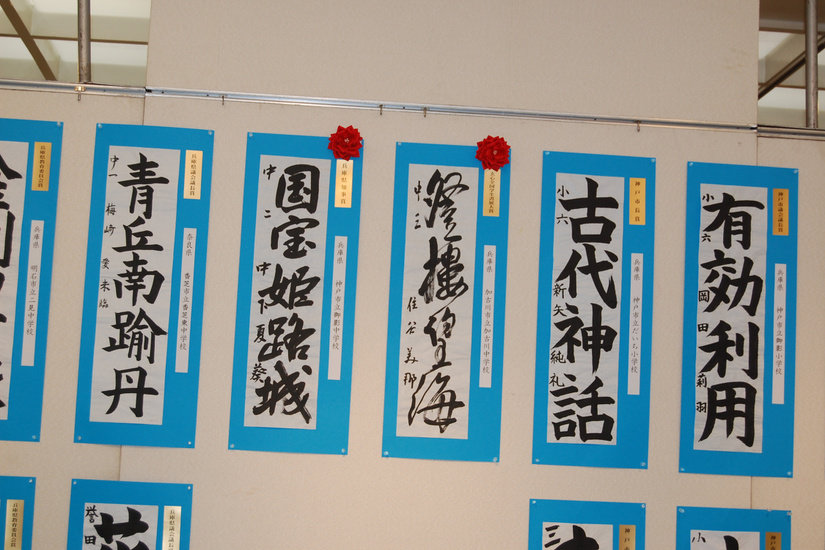 神戸市議会議長賞
兵庫県 神戸市立御影小学校
有効利用
小六 岡田莉羽
神戸市長賞
兵庫県 神戸市立だいち小学校
古代神話
小六 新矢純礼
兵庫県 加古川市立加古川中学校
登樓望海
中三 住谷美那
兵庫県知事賞
兵庫県 神戸市立御影中学校
国宝姫路城
中二 中下夏葵
兵庫県議会議長賞
奈良県 香芝市立香芝東中学校
青丘南踰丹
中一 梅崎愛未臨
兵庫県教育委員会賞
兵庫県 明石市立二見中学校
神戸市
小
三
兵庫県議会議長賞
誉田
兵庫県教育委員会賞